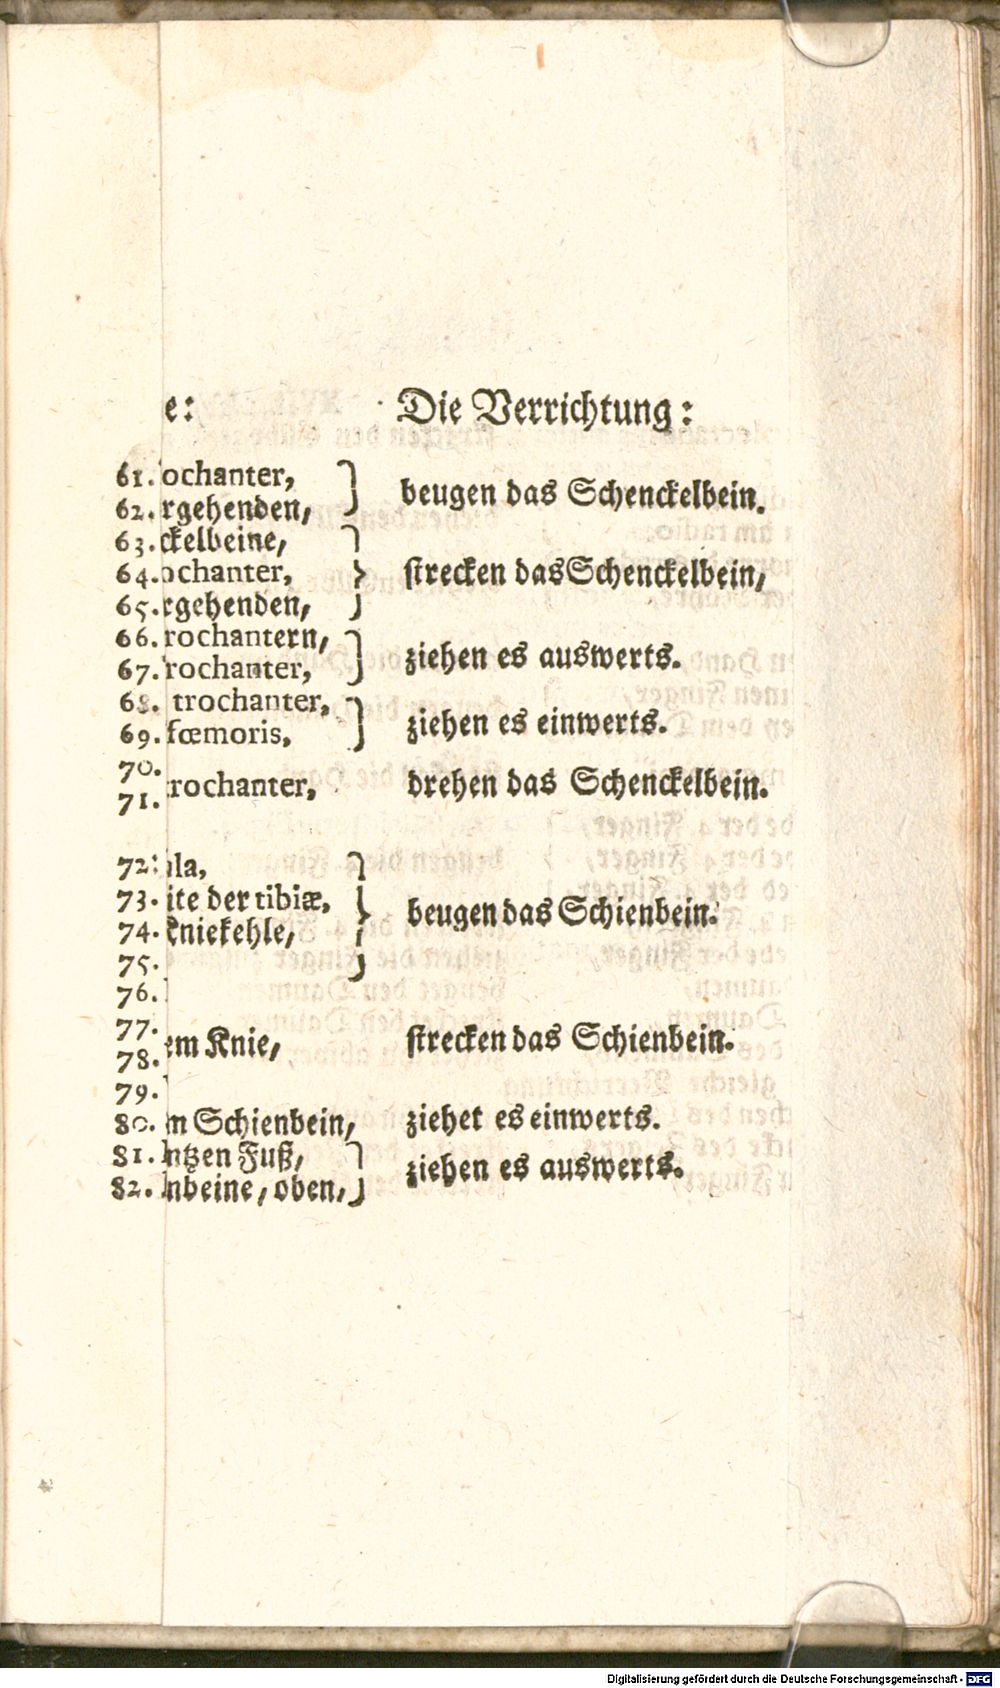 e: Die Verrichtung:
61. ochanter,
beugen das Schenckelbein.
62. rgehenden,
63. ckelbeine,
64. ochanter, strecken das Schenckelbein,
65. rgehenden,
66. rochantern,
ziehen es auswerts.
67. rochanter,
68. trochanter,
ziehen es einwerts.
69. fœmoris,
70.
rochanter, drehen das Schenckelbein.
71.
72. la,
73. ite der tibiæ,
beugen das Schienbein.
74. Kniekehle,
75.
76.
77.
em Knie, strecken das Schienbein.
78.
79.
80. m Schienbein, ziehet es einwerts.
81. ntzen Fuß,
ziehen es auswerts.
82. nbeine, oben,
Digitalisierung gefördert durch die Deutsche Forschungsgemeinschaft - DFG